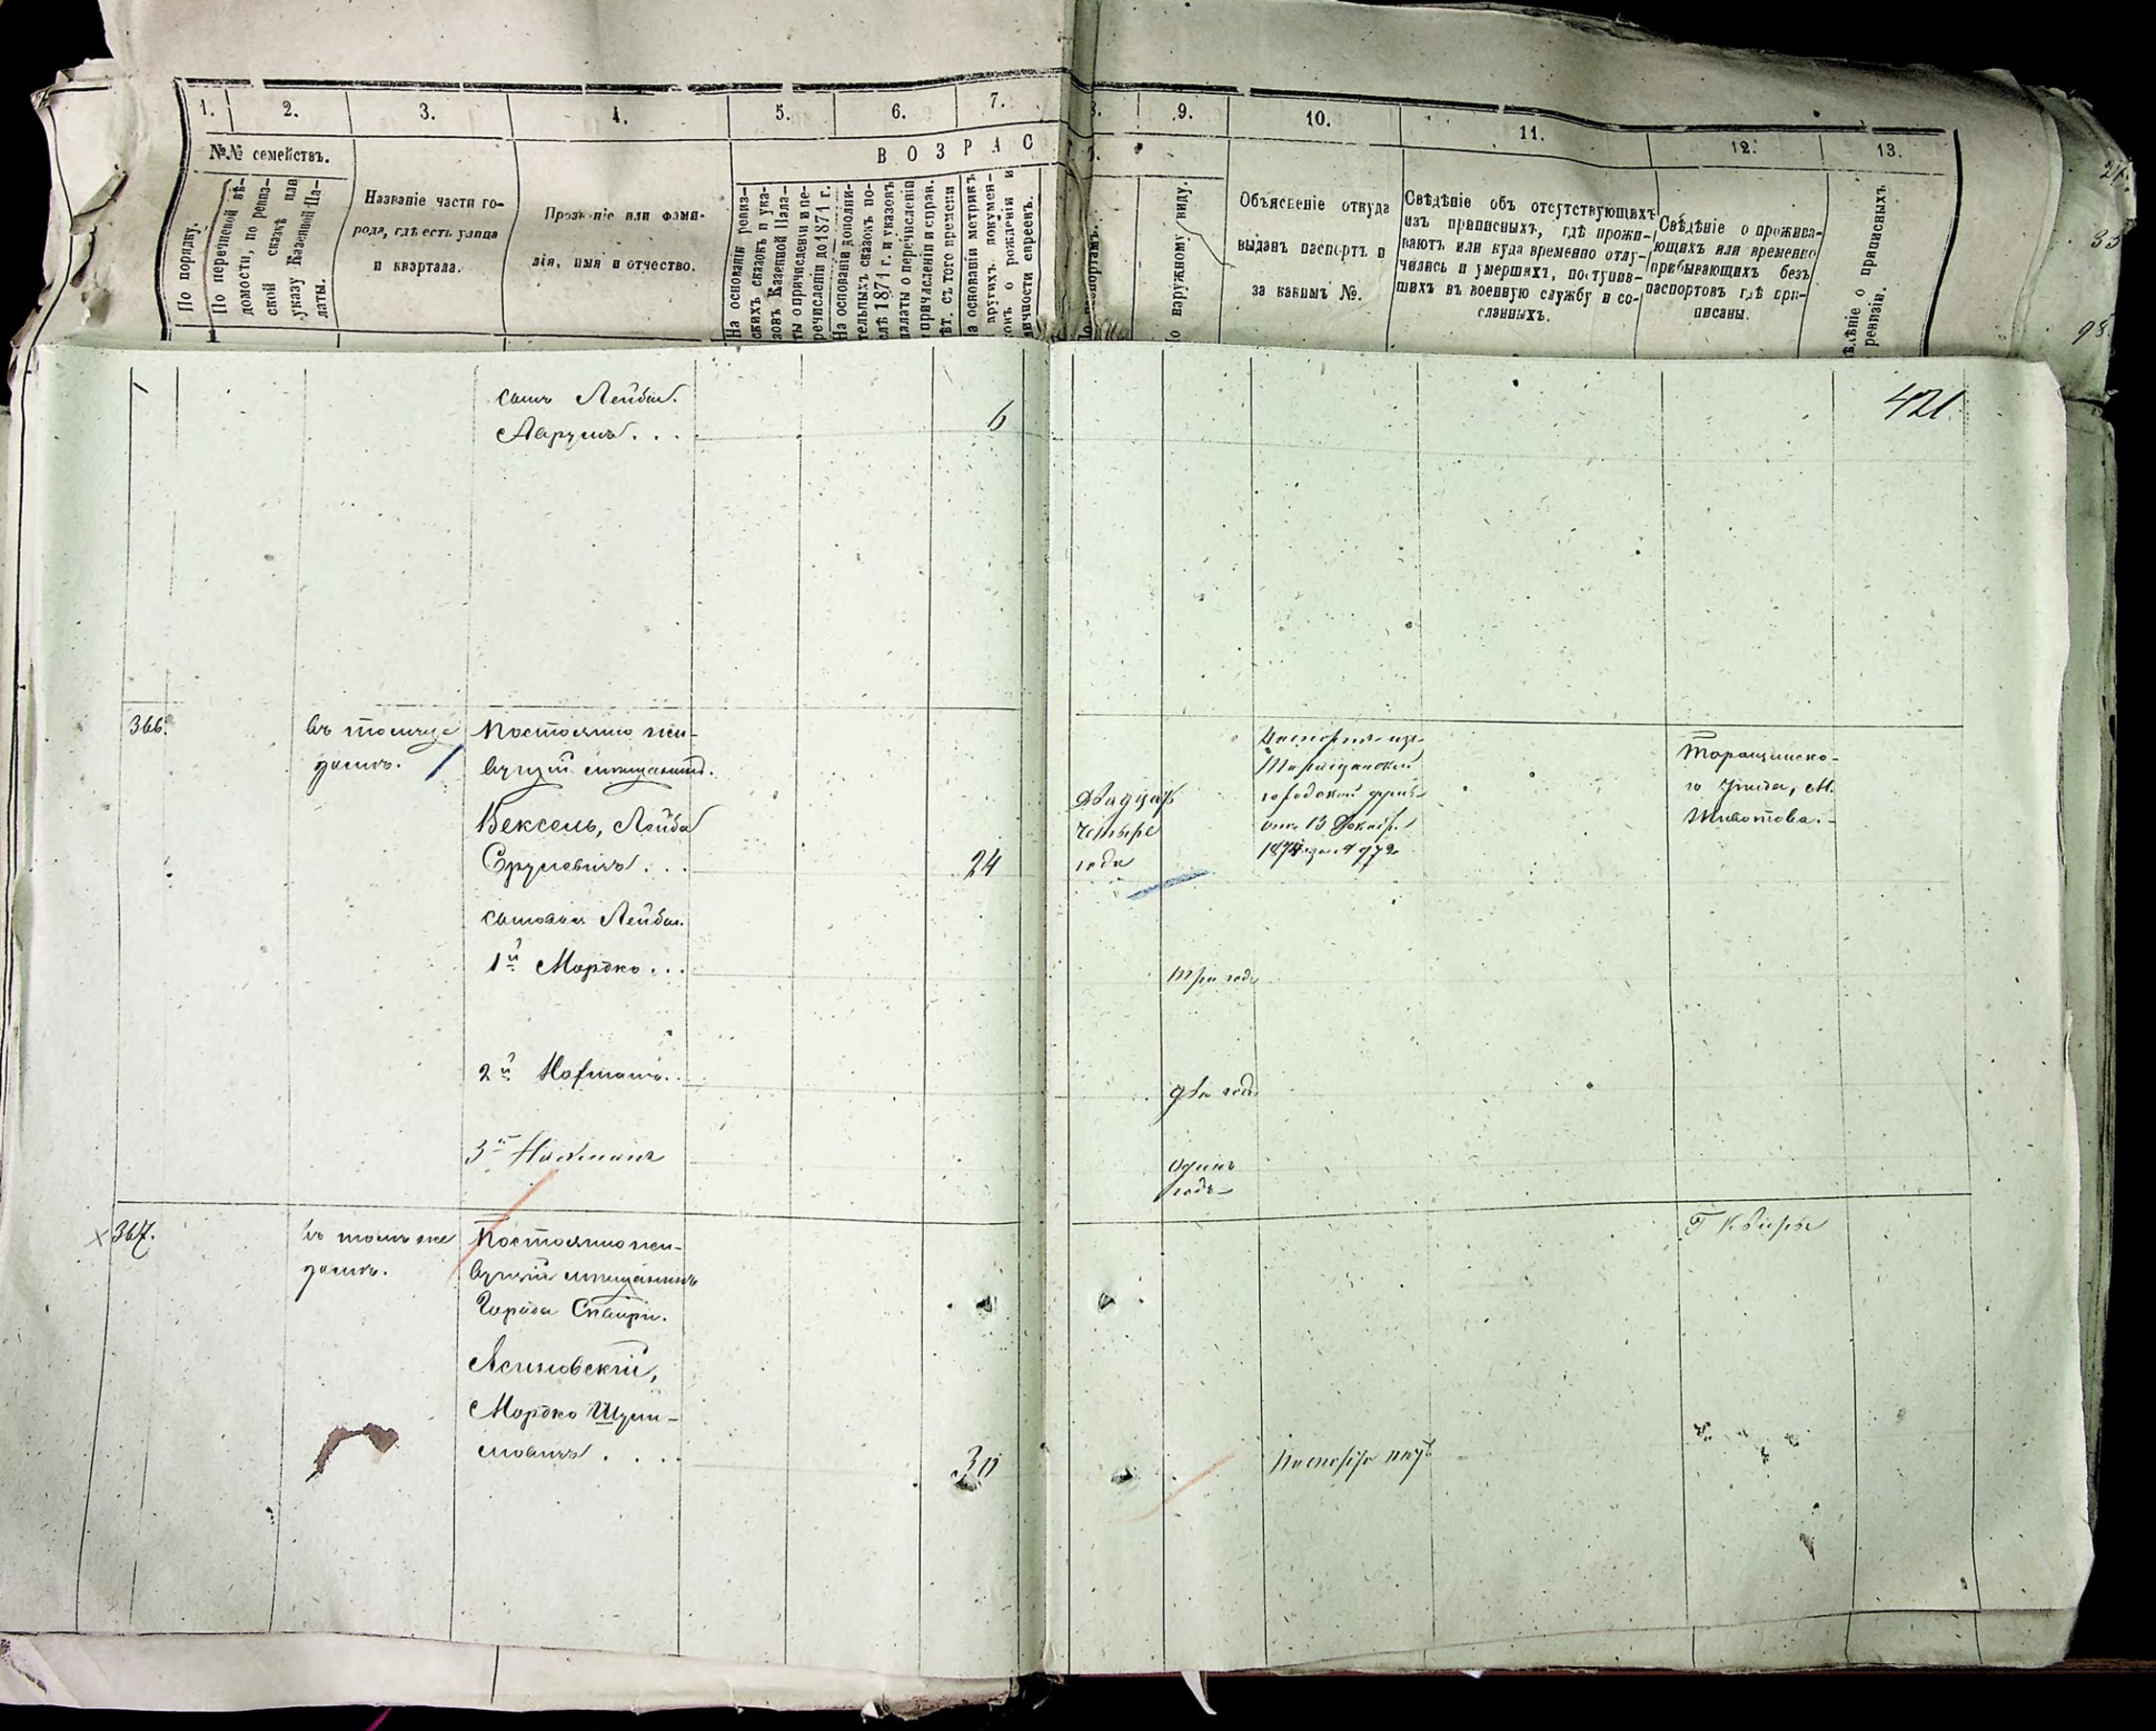 1. 2. 3. 4. 5. 6. 7. 8. 9. 10. 11. 12. 13.
№№ семействъ.
В О З Р А С Т
По порядку.
По перечневой вѣ-
домости, по ревиз-
ской сказкѣ или
указу Казенной Па-
латы.
Названіе части го-
рода, гдѣ есть улица
и квартала.
Прозваніе или фами-
лія, имя и отчество.
На основаніи ревиз-
скихъ сказокъ и ука-
зовъ Казенной Пала-
ты о причисленіи и пе-
речисленіи до 1871 г.
На основаніи дополни-
тельныхъ сказокъ по-
слѣ 1871 г. и указовъ
палаты о перечисленіи
причисленіи и справ.
лѣт. съ того времени
На основаніи метрикъ
другихъ докумен-
товъ о рожденіи и
личности евреевъ.
По паспортамъ.
По наружному виду.
Объясненіе откуда
выданъ паспортъ и
за какимъ №.
Свѣдѣніе объ отсутствующихъ
изъ приписныхъ, гдѣ прожи-
ваютъ или куда временно отлу-
чились и умершихъ, поступив-
шихъ въ военную службу и со-
сланныхъ.
Свѣдѣніе о прожива-
ющихъ или временно
прибывающихъ безъ
паспортовъ гдѣ при-
писаны.
Свѣдѣніе о приписныхъ
ревизіи.
421.
сынъ Лейбы.
Аврумъ . . . 6
366. въ томъ же
домѣ.
Постоянно жи-
вущій мѣщанинъ.
Вексель, Лейба
Срулевичъ . . . 24
Двадцать
четыре
года
Паспортъ изъ
Таращанской
городской
отъ 13 Декабр.
1874 за № 972
Таращанско-
го Уѣзда, М.
Животова.
сыновья Лейбы.
1й Мордко . . . три года
2й Нафтанъ . . два года
3й Нахманъ одинъ
годъ
367. въ томъ же
домѣ.
Постоянно жи-
вущій мѣщанинъ
Города Сквири.
Ясиновскій,
Мордко Шум-
иловичъ . . . . 30
Паспортъ
Г Сквиры